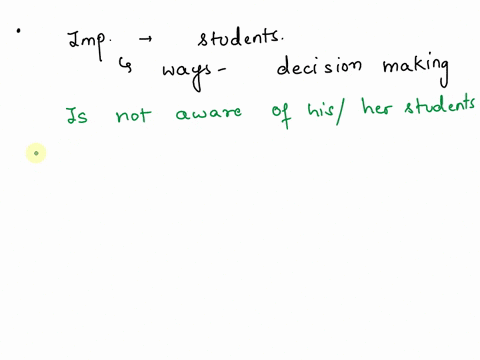 • Imp. → students.
↳ ways - decision making
Is not aware of his/ her students